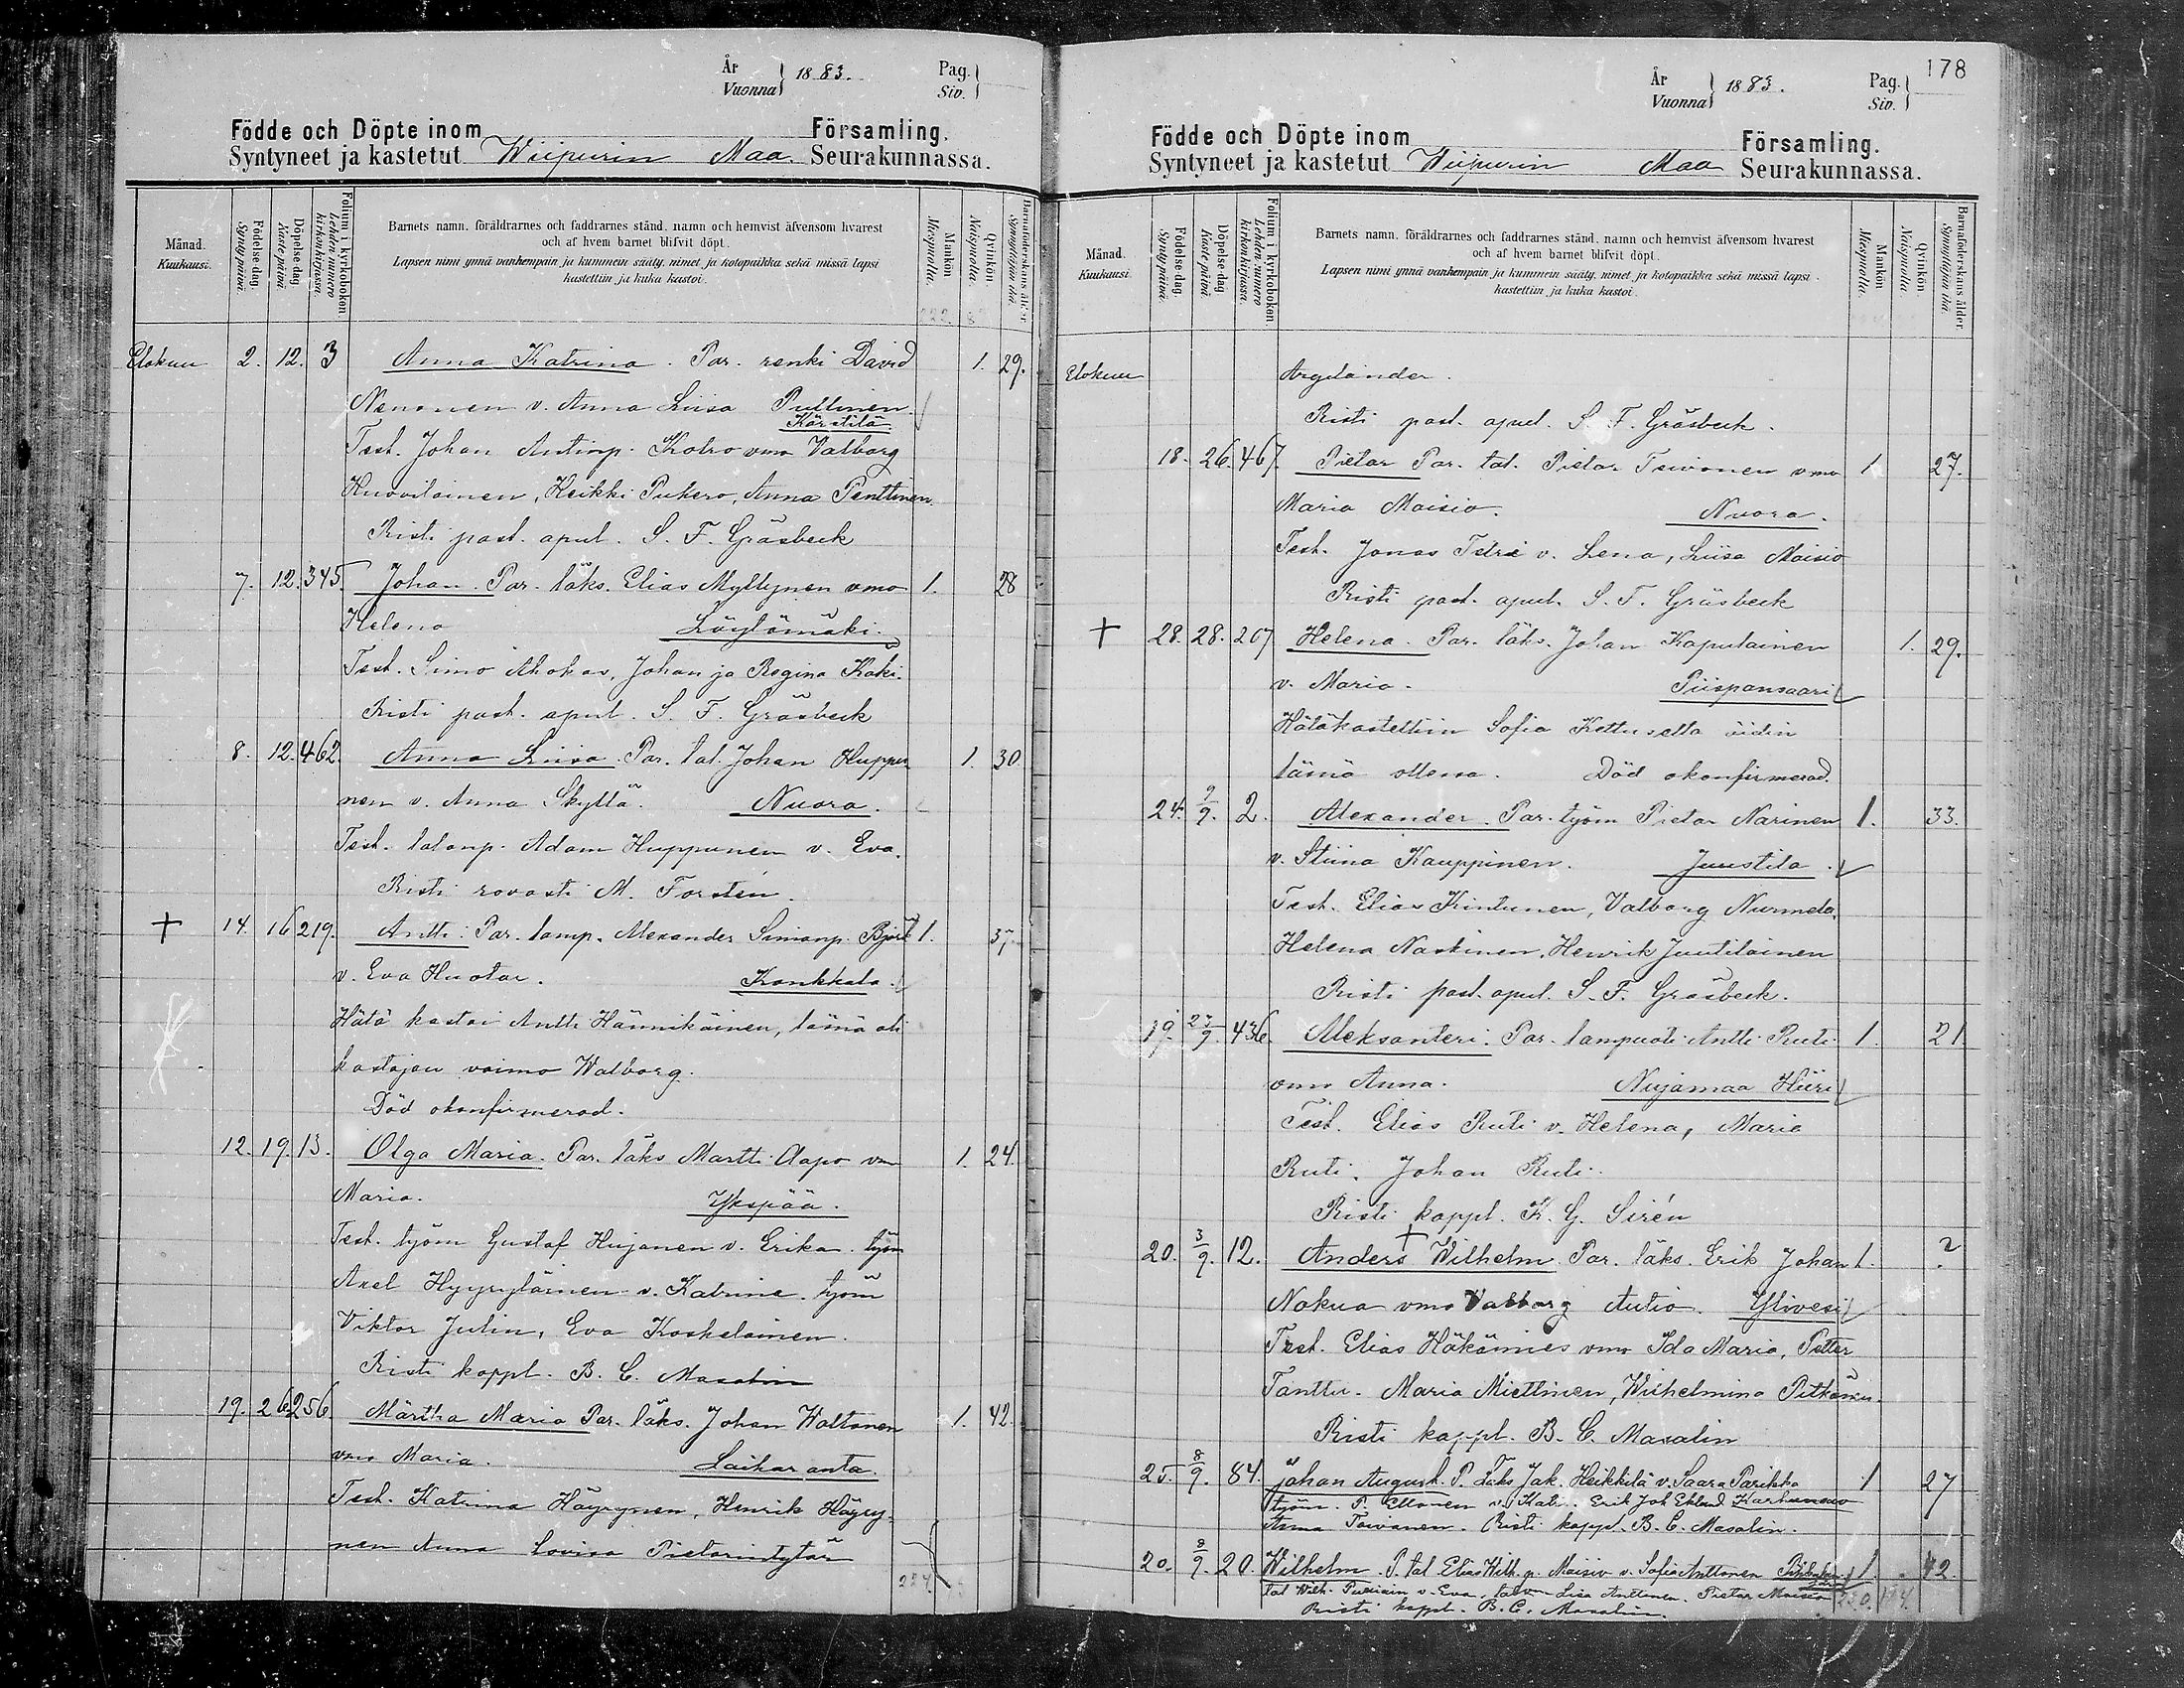 År
Vuonna } 1883.
Pag.
Siv. }
Födde och Döpte inom Församling.
Syntyneet ja kastetut Wiipurin Maa Seurakunnassa.
Månad.
Kuukausi.
Födelse dag.
Syntypäivä.
Döpelse dag
Kastepäivä
Folium i kyrkoboken.
Lehden numero kirkonkirjassa.
Barnets namn, föräldrarnes och faddrarnes stånd, namn och hemvist äfvensom hvarest
och af hvem barnet blifvit döpt.
Lapsen nimi ynnä vanhempain ja kummein sääty, nimet ja kotopaikka sekä missä lapsi
kastettiin ja kuka kastoi.
Mankön
Miespuolia.
Qvinkön
Naispuolia.
Barnaföderskans ålder.
Synnyttäjän ikä.
Elokuu 2. 12. 3 Anna Katrina. Par. renki David 1. 29.
Nenonen v. Anna Liisa Pullinen
Kärstilä
Test. Johan Antinp. Kotro vmo Valborg
Huovilainen, Heikki Pukero, Anna Penttinen
Risti past. apul. S. F. Gräsbeck
7. 12. 345. Johan. Par. läks. Elias Myllynen vmo 1. 28
Helena Löylömäki.
Test. Simo Ahokas, Johan ja Regina Kaki.
Risti past. apul. S. F. Gräsbeck
8. 12. 462. Anna Liisa. Par. tal. Johan Huppu 1. 30
nen v. Anna Skyttä. Nuora.
Test. talonp. Adam Huppunen v. Eva.
Risti rovasti M. Forstén.
+ 14. 16 219. Antti. Par. lamp. Alexander Simonp. Björk 1. 37.
v. Eva Huotar. Konkkala.
Hätä kastoi Antti Hännikäinen, läsnä oli
kastajan vaimo Walborg.
Död okonfirmerad.
12. 19. 13. Olga Maria. Par. läks Martti Aapo vm 1. 24.
Maria. Ykspää.
Test. työm Gustaf Hujanen v. Erika. työm
Axel Hyyryläinen v. Katrina. työm
Viktor Julin, Eva Koskelainen.
Risti kappl. B. C. Masalin
19. 26 256. Märtha Maria Par. läks. Johan Waltonen 1. 42.
vmo Maria. Laiharanta.
Test. Katrina Häyrynen, Henrik Häyry-
nen Anna Lovisa Pietarintytär
178
År
Vuonna } 1883.
Pag.
Siv. }
Födde och Döpte inom Församling.
Syntyneet ja kastetut Wiipurin Maa Seurakunnassa.
Månad.
Kuukausi.
Födelse dag.
Syntypäivä.
Döpelse dag
Kastepäivä
Folium i kyrkoboken.
Lehden numero kirkonkirjassa.
Barnets namn, föräldrarnes och faddrarnes stånd, namn och hemvist äfvensom hvarest
och af hvem barnet blifvit döpt.
Lapsen nimi ynnä vanhempain ja kummein sääty, nimet ja kotopaikka sekä missä lapsi
kastettiin ja kuka kastoi.
Mankön
Miespuolia.
Qvinkön.
Naispuolia
Barnaföderskans ålder.
Synnyttäjän ikä
Elokuu Argelander.
Risti past. apul. S. F. Gräsbeck.
18. 26. 467. Pietar Par. tal. Pietar Toivonen vmo 1 27.
Maria Maisio. Nuora.
Test. Jonas Tetri v. Lena, Liisa Maisio
Risti past. apul. S. F. Gräsbeck
+ 28. 28. 207 Helena. Par. läks. Johan Kapulainen 1. 29.
v. Maria. Piispansaari
Hätäkastettiin Sofia Kottuselta äidin
läsnä ollessa. Död okonfirmerad.
24. 9/9. 2. Alexander. Par. työm Pietar Narinen 1. 33.
v. Stiina Kauppinen. Juustila.
Test. Elias Kintunen, Valborg Nurmela,
Helena Naskinen, Henrik Juutilainen
Risti past. apul. S. F. Gräsbeck.
19. 23/9. 436. Aleksanteri. Par. lampuoti Antti Ruti 1. 21
vmo Anna. Nuijamaa Hiiri
Test. Elias Ruti v. Helena, Maria
Ruti. Johan Ruti.
Risti kappl. K. G. Sirén
20. 3/9. 12. Anders + Wilhelm. Par. läks. Erik Johan 1. ?
Nokua vmo Valborg Autio. Ylivesi
Test. Elias Häkämies vmo Ida Maria, Petter
Tanttu. Maria Miettinen, Wilhelmina Pitkänen.
Risti kappl. B. C. Masalin
25. 8/9. 84. Johan August. P. Läks Jak. Heikkilä v. Saara Parikka 1 27
työm. P. Ellonen v. Katr. Erik Joh Eklund Karhusuo
Anna Toivonen. Risti kappl. B. C. Masalin.
20. 8/9. 20. Wilhelm. P. tal Elias Wilh. p. Maisio v. Sofia Anttonen 1. 42.
tal Wilh. v. Eva, Lisa Anttonen. Pietar Maisio
Risti kappl. B. C. Masalin.